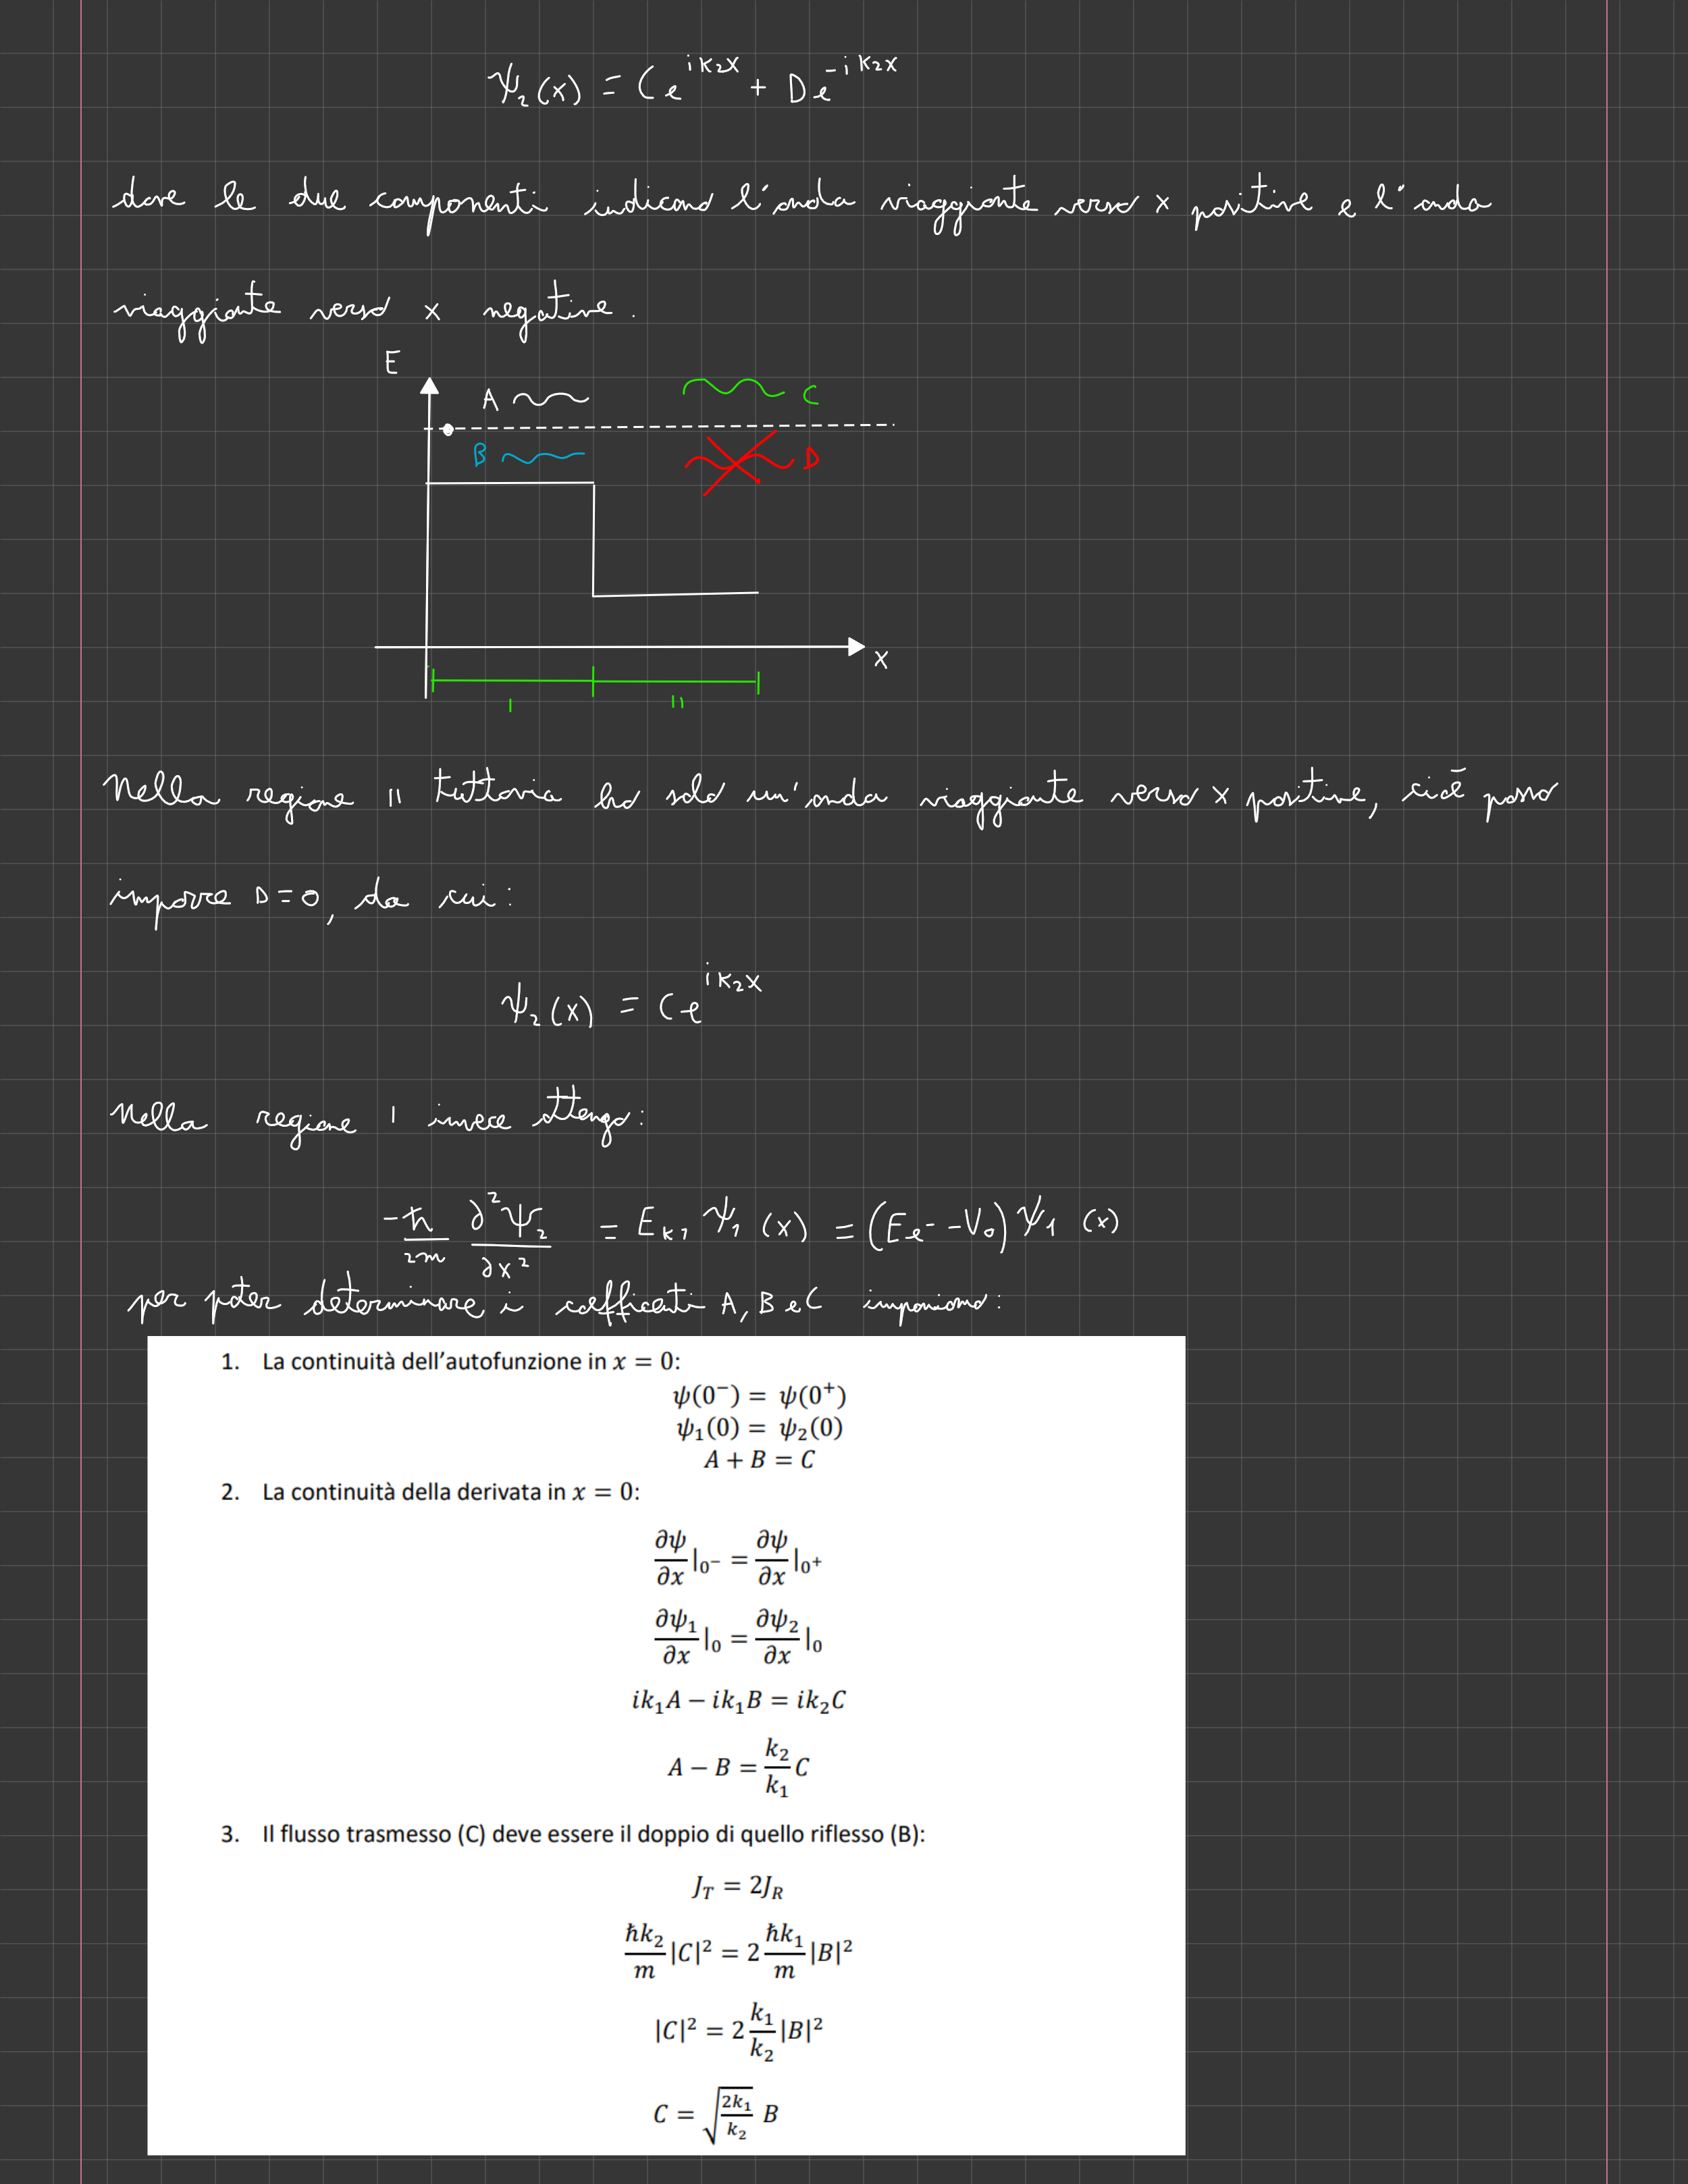 ψ₂(x) = C e^{ik₂x} + D e^{-ik₂x}
dove le due componenti indicano l'onda viaggiante verso x positive e l'onda
viaggiante verso x negative.
E
A C
B D
x
I II
Nella regione II tuttavia ho solo un'onda viaggiante verso x positive, cioè posso
imporre D=0, da cui:
ψ₂(x) = C e^{ik₂x}
Nella regione I invece ottengo:
-ℏ/2m ∂²ψ₂/∂x² = E_{k1} ψ₁(x) = (E_{e⁻} - V₀) ψ₁(x)
per poter determinare i coefficenti A, B e C imponiamo:
1. La continuità dell'autofunzione in x = 0:
ψ(0⁻) = ψ(0⁺)
ψ₁(0) = ψ₂(0)
A + B = C
2. La continuità della derivata in x = 0:
∂ψ/∂x |₀⁻ = ∂ψ/∂x |₀⁺
∂ψ₁/∂x |₀ = ∂ψ₂/∂x |₀
ik₁A − ik₁B = ik₂C
A − B = k₂/k₁ C
3. Il flusso trasmesso (C) deve essere il doppio di quello riflesso (B):
J_T = 2J_R
ℏk₂/m |C|² = 2 ℏk₁/m |B|²
|C|² = 2 k₁/k₂ |B|²
C = √(2k₁/k₂) B